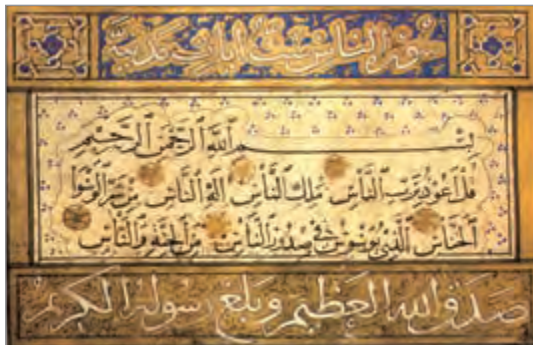 سورة الناس ست ايات مدنية
بِسْمِ ٱللَّهِ ٱلرَّحْمَٰنِ ٱلرَّحِيمِ
قُلْ أَعُوذُ بِرَبِّ النَّاسِ مَلِكِ النَّاسِ إِلَٰهِ النَّاسِ مِنْ شَرِّ الْوَسْوَاسِ
الْخَنَّاسِ الَّذِي يُوَسْوِسُ فِي صُدُورِ النَّاسِ مِنَ الْجِنَّةِ وَالنَّاسِ
صدق الله العظيم وبلغ رسوله الكريم